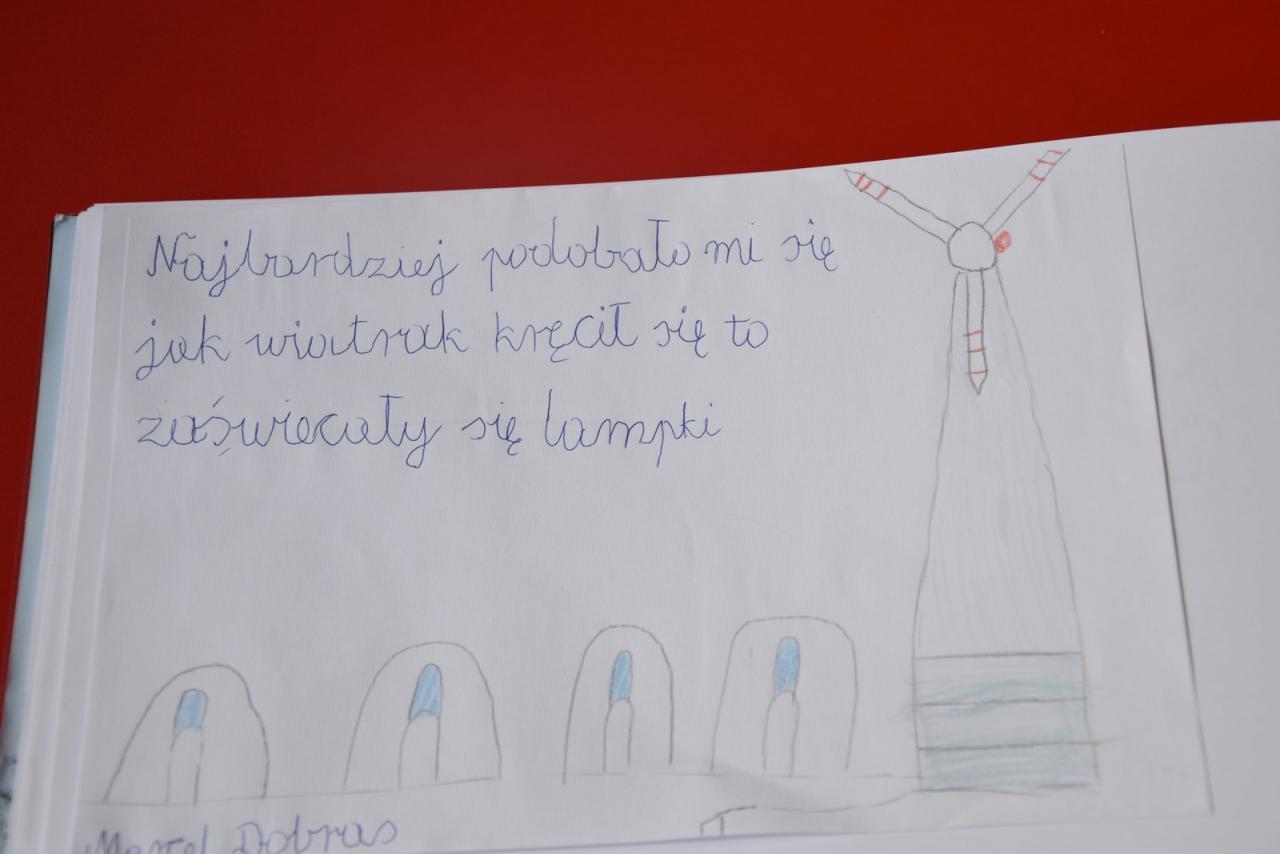 Najbardziej podobało mi się
jak wiatrak kręcił się to
zaświecały się lampki
Marcel Dobras